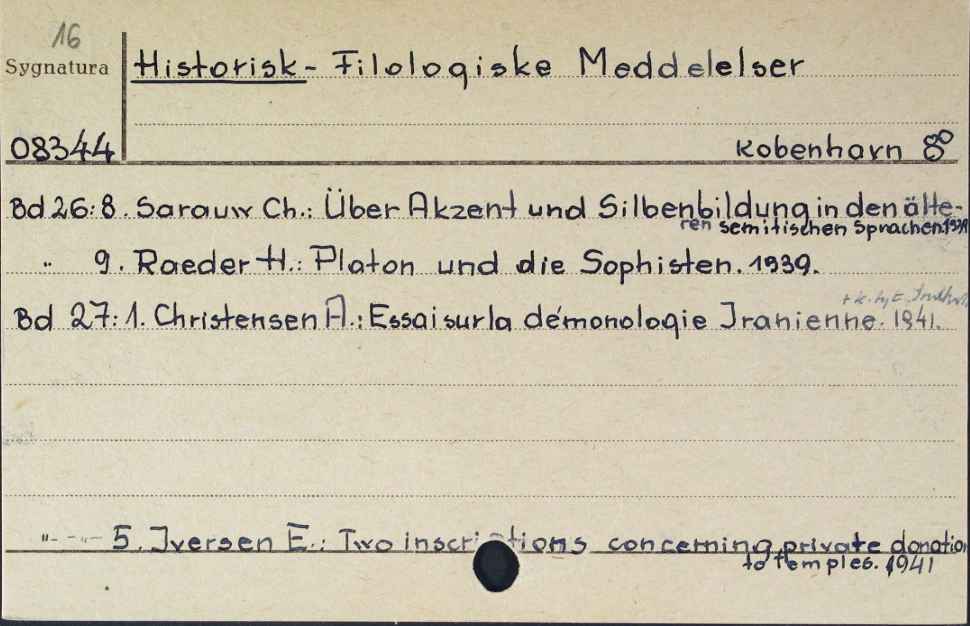 16
Sygnatura
Historisk - Filologiske Meddelelser
08344
Kobenharn 8°
Bd 26:8. Sarauw Ch.: Über Akzent und Silbenbildung in den älte-
ren semitischen Sprachen. 1939
" 9. Raeder H.: Platon und die Sophisten. 1939.
Bd 27:1. Christensen A.: Essai sur la démonologie Iranienne. 1941.
" - - " - 5. Iversen E.: Two inscriptions concerning private donation
to temples. 1941